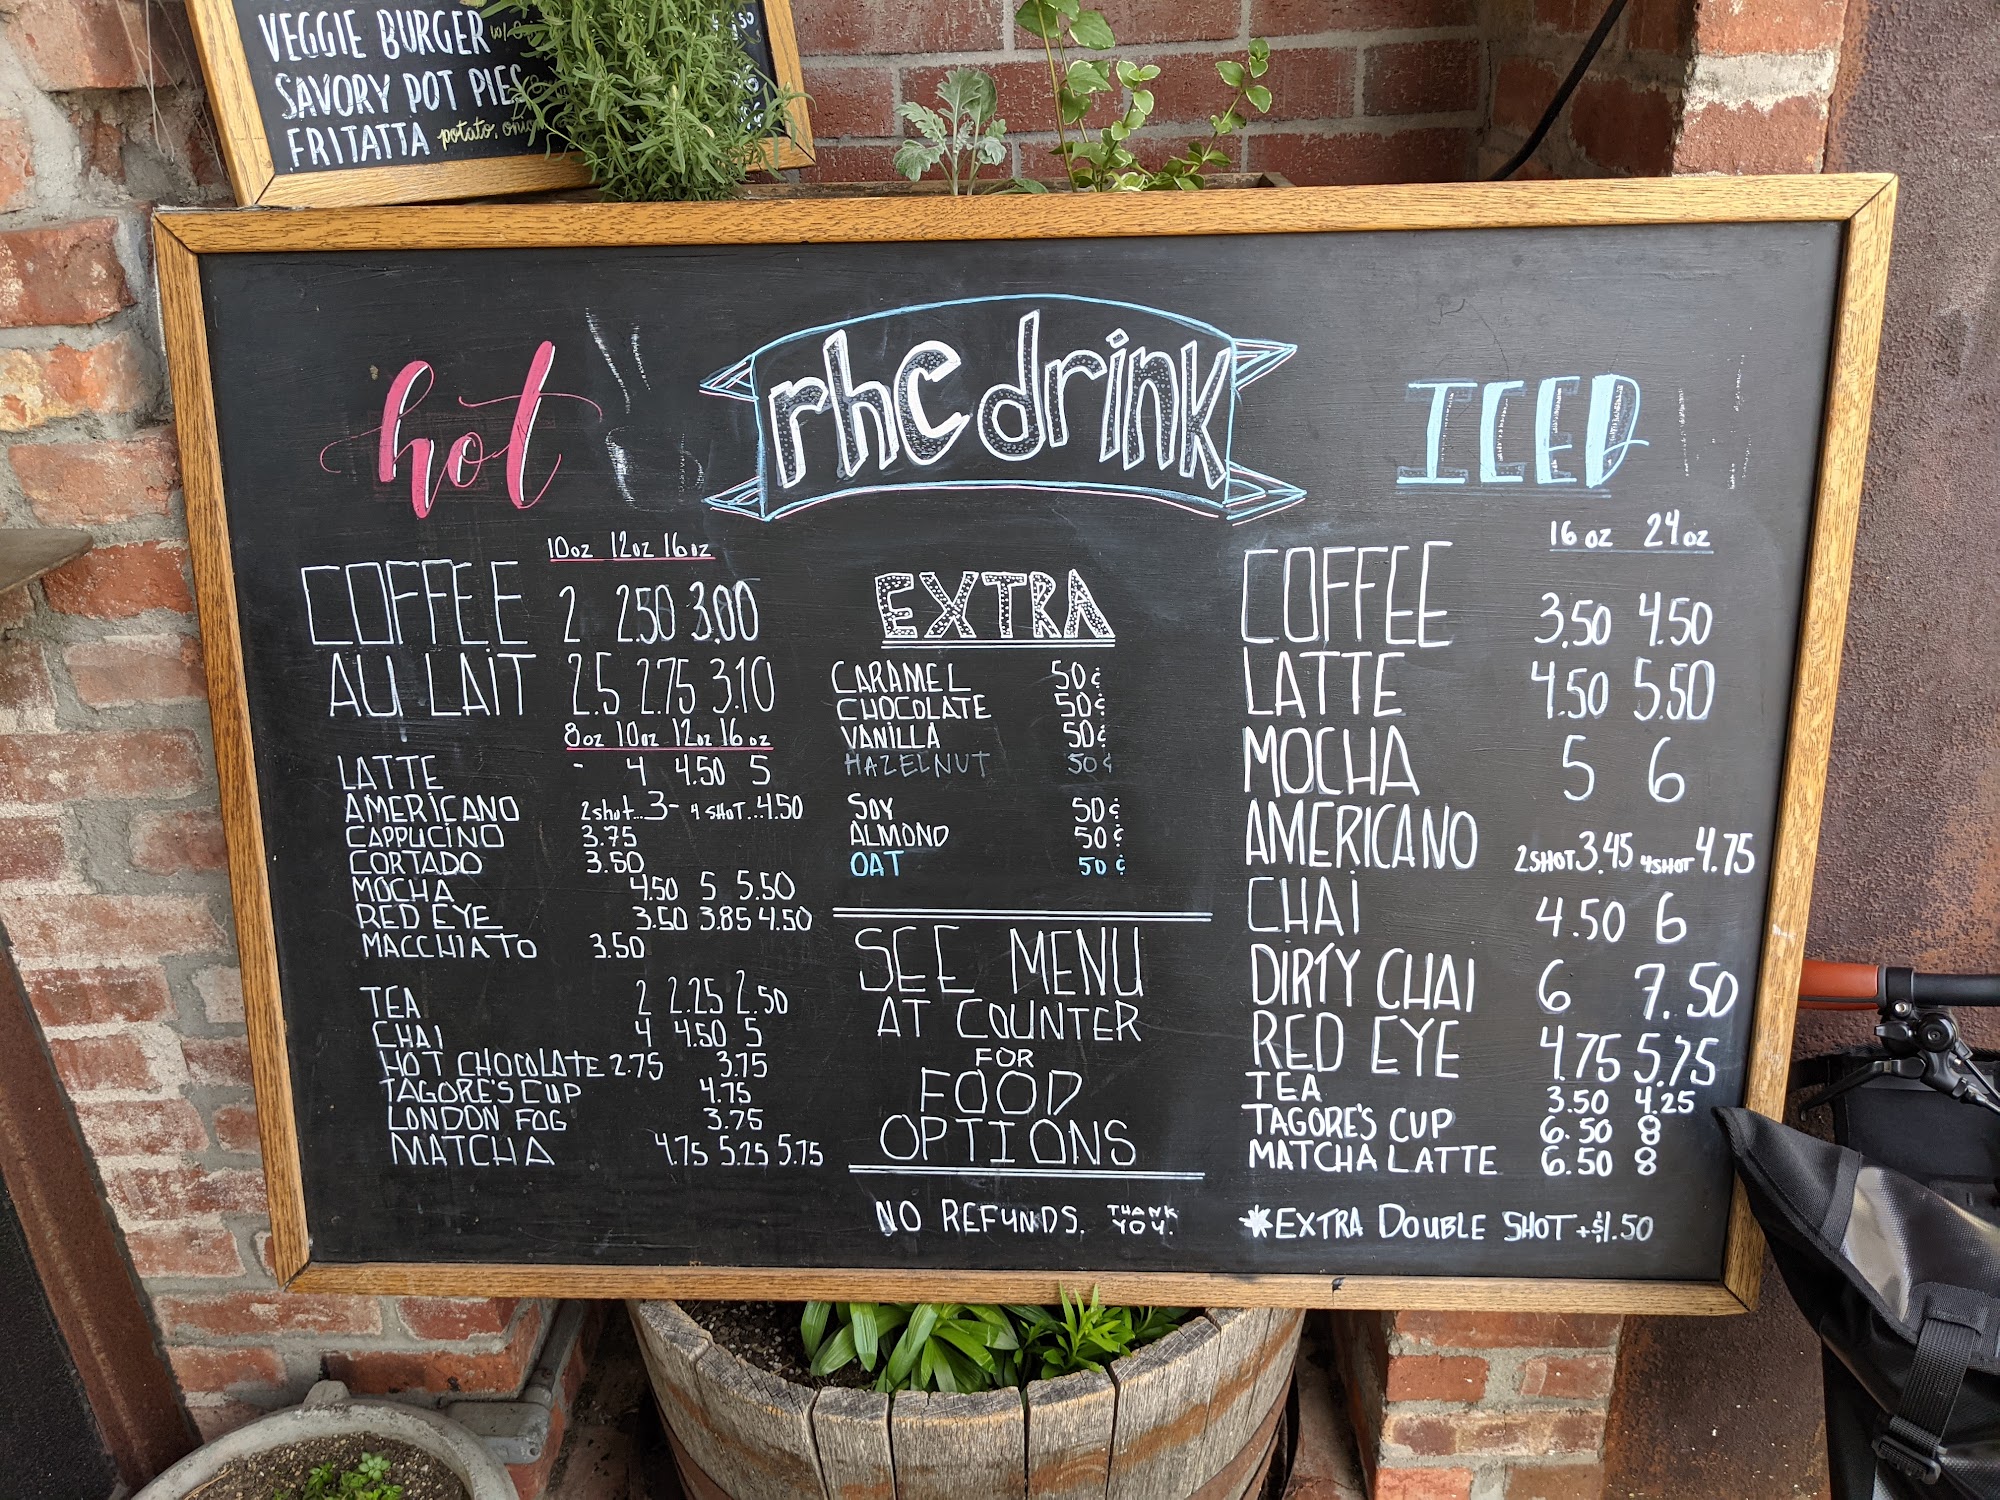 VEGGIE BURGER
SAVORY POT PIES
FRITATTA potato, onion
rhc drink
hot
10oz 12oz 16oz
COFFEE 2 2.50 3.00
AU LAIT 2.5 2.75 3.10
8oz 10oz 12oz 16oz
LATTE - 4 4.50 5
AMERICANO 2shot...3- 4 SHOT...4.50
CAPPUCINO 3.75
CORTADO 3.50
MOCHA 4.50 5 5.50
RED EYE 3.50 3.85 4.50
MACCHIATO 3.50
TEA 2 2.25 2.50
CHAI 4 4.50 5
HOT CHOCOLATE 2.75 3.75
TAGORE'S CUP 4.75
LONDON FOG 3.75
MATCHA 4.75 5.25 5.75
EXTRA
CARAMEL 50¢
CHOCOLATE 50¢
VANILLA 50¢
HAZELNUT 50¢
SOY 50¢
ALMOND 50¢
OAT 50¢
SEE MENU
AT COUNTER
FOR
FOOD
OPTIONS
NO REFUNDS. THANK YOU.
ICED
16 oz 24oz
COFFEE 3.50 4.50
LATTE 4.50 5.50
MOCHA 5 6
AMERICANO 2SHOT 3.45 4SHOT 4.75
CHAI 4.50 6
DIRTY CHAI 6 7.50
RED EYE 4.75 5.75
TEA 3.50 4.25
TAGORE'S CUP 6.50 8
MATCHA LATTE 6.50 8
*EXTRA DOUBLE SHOT +$1.50